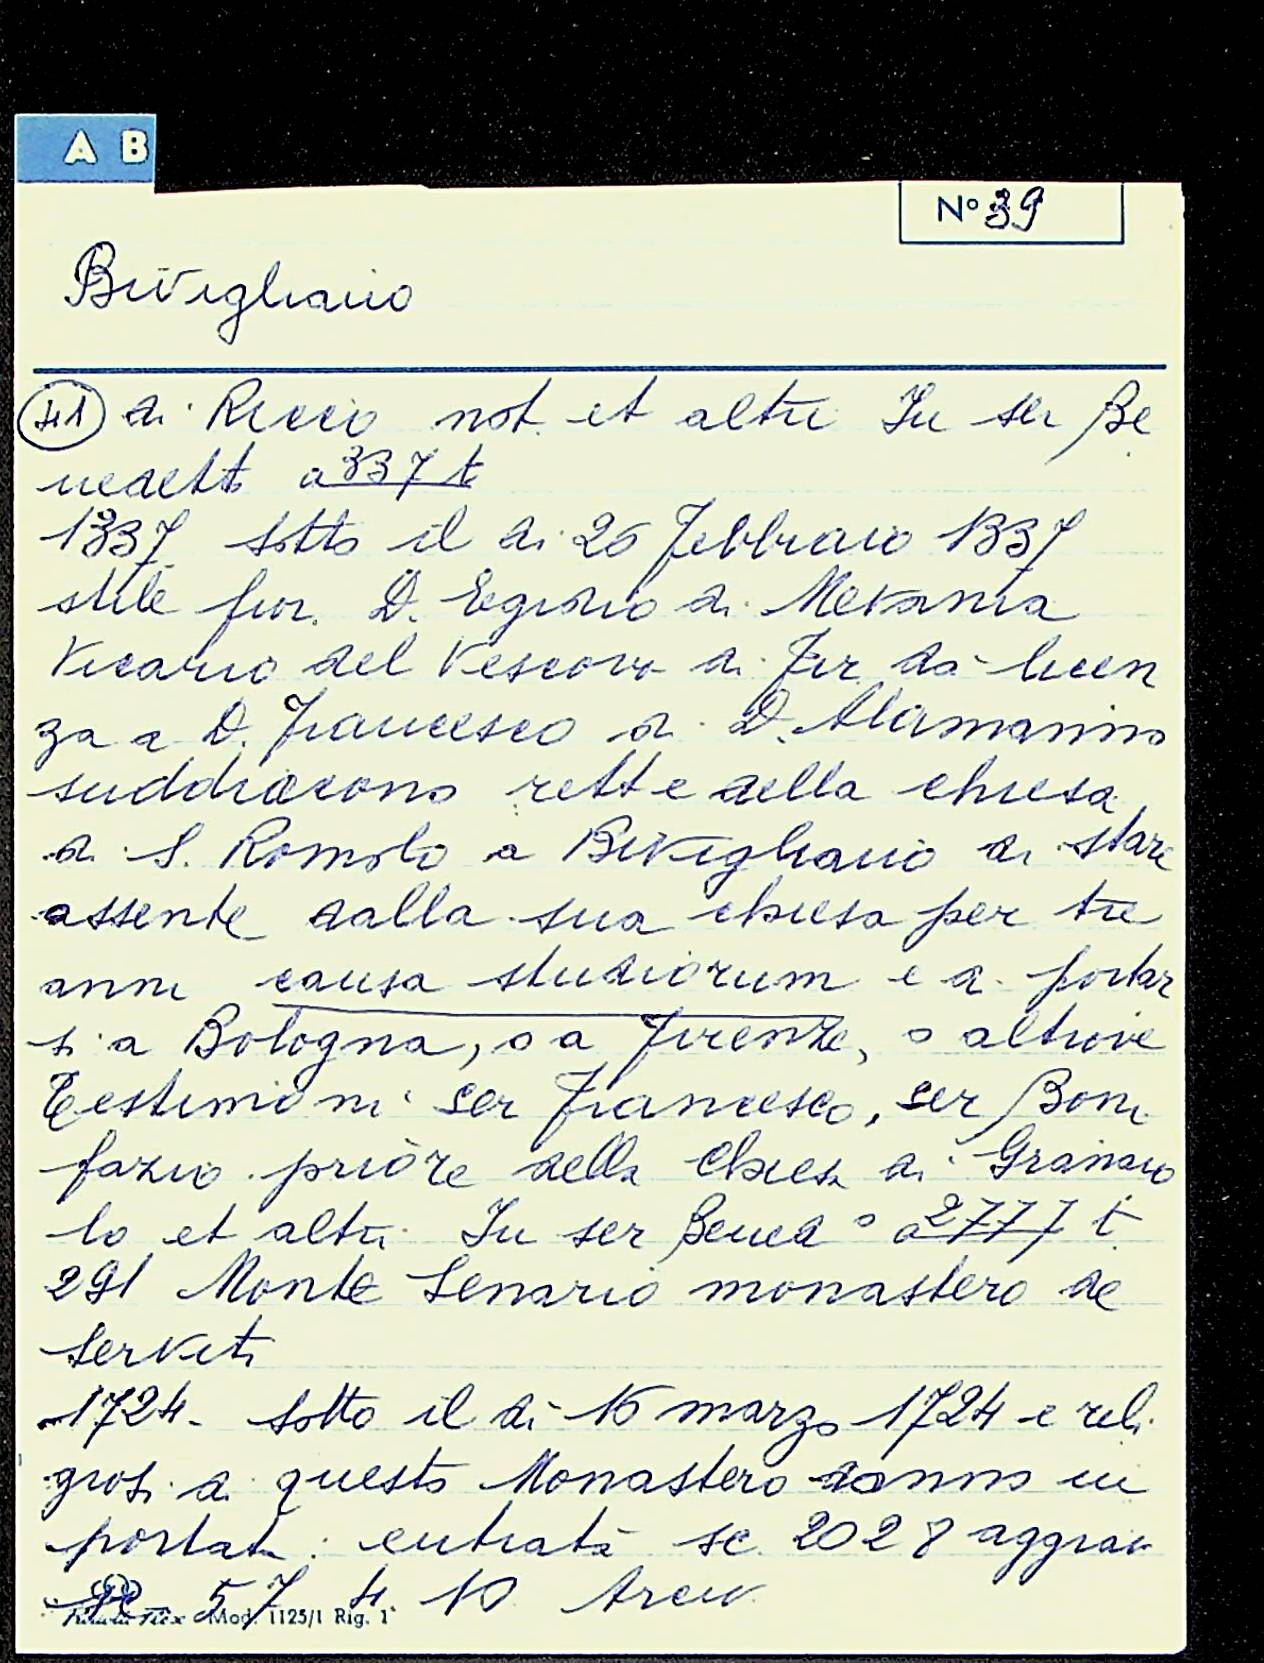 A B
N° 39
Bivigliano
41 di Riccio not. et altri In ser Be
nedetto a 337 t
1337. sotto il di 26 febbraio 1337
stile fior. D. Egidio di Mevania
Vicario del Vescovo di Fir dà licen
za a D. Francesco di D. Alamanno
suddiacono rettore della chiesa
di S. Romolo a Bivigliano di stare
assente dalla sua chiesa per tre
anni causa studiorum e di portar
si a Bologna, o a Firenze, o altrove
Testimoni ser Francesco, ser Boni
fazio priore della Chiesa di Granaio
lo et altri. In ser Bened° a 2777 t
291 Monte Senario monastero de
Serviti
1724. Sotto il di 16 marzo 1724 e reli
giosi di questo Monastero danno in
portata: entrata sc. 2028 aggrav
sc 57 4. 10 Arciv.
Mod. 1125/1 Rig. 1